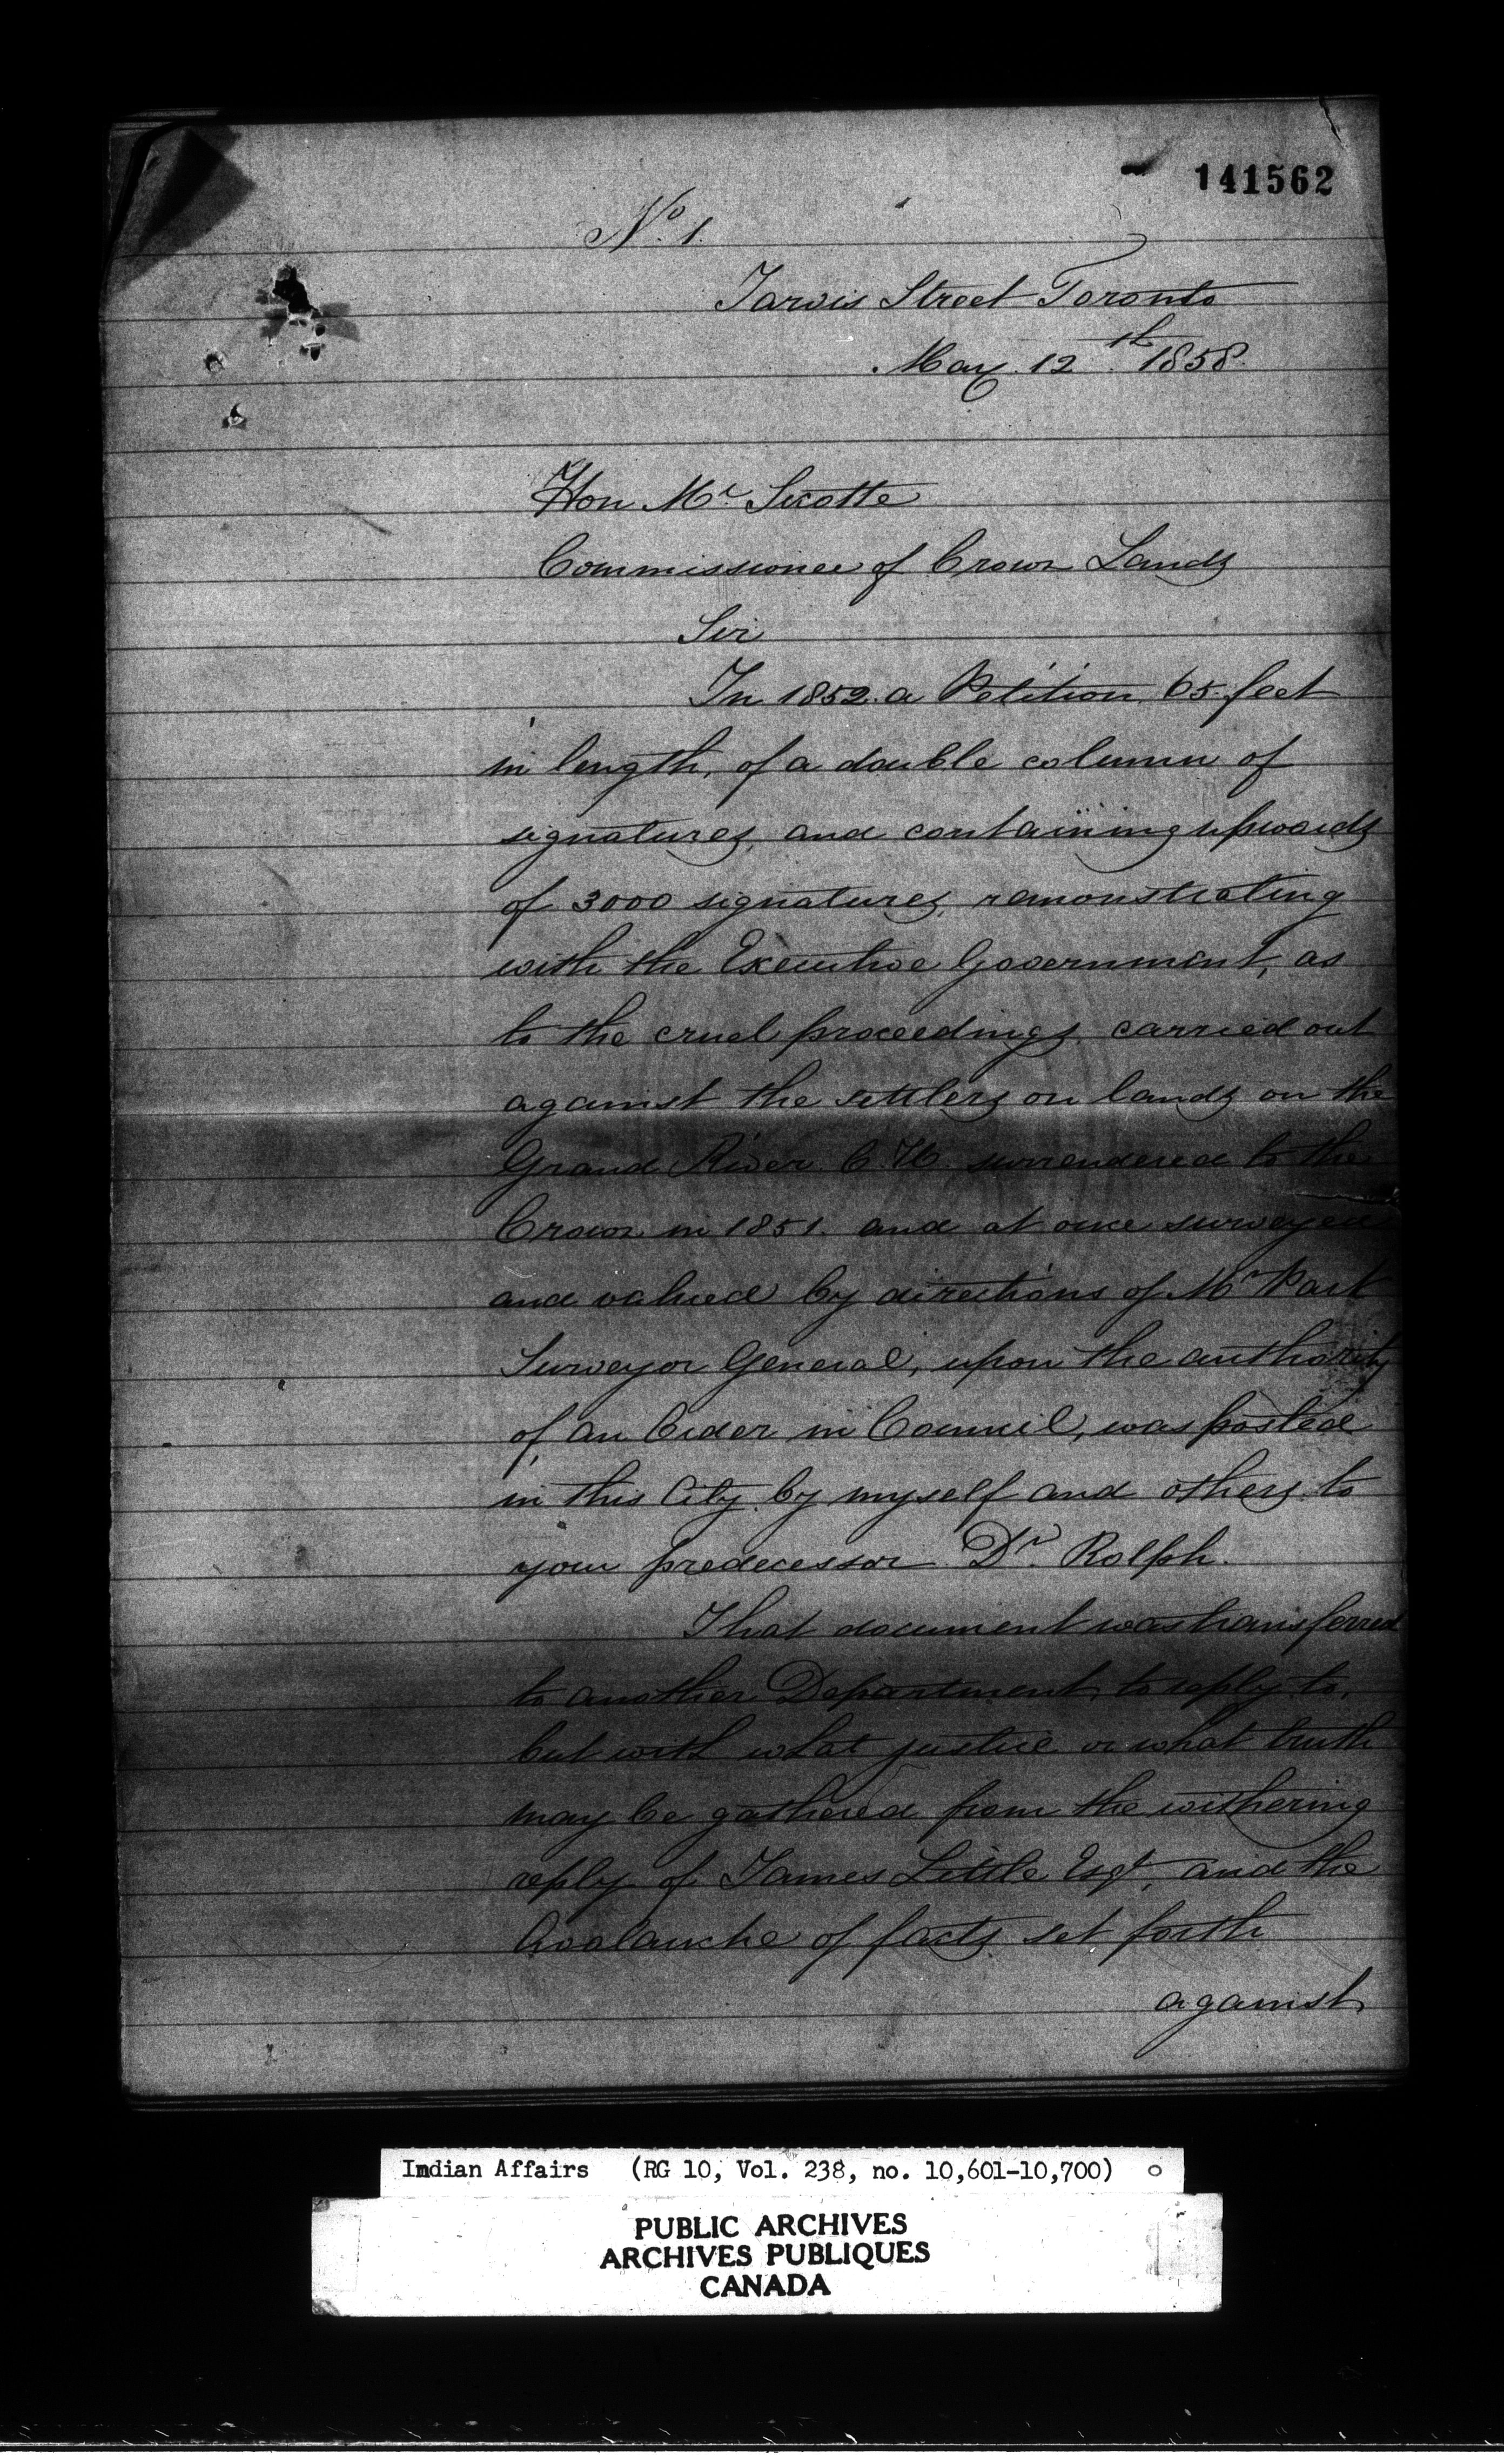 141562
No. 1.
Jarvis Street Toronto
May 12th 1858.
Hon Mr. Sicotte
Commissioner of Crown Lands
Sir
In 1852. a Petition 65 feet
in length, of a double column of
signatures, and containing upwards
of 3000 signatures, remonstrating
with the Executive Government, as
to the cruel proceedings carried out
against the settlers on lands on the
Grand River C. W. surrendered to the
Crown in 1851. and at once surveyed
and valued by directions of Mr Park
Surveyor General, upon the authority
of an Order in Council, was posted
in this City by myself and others to
your predecessor Dr. Rolph.
That document was transferred
to another Department to reply to,
but with what justice or what truth
may be gathered from the withering
reply of James Little Esqr, and the
Avalanche of facts set forth
against
Indian Affairs (RG 10, Vol. 238, no. 10,601-10,700)
PUBLIC ARCHIVES
ARCHIVES PUBLIQUES
CANADA